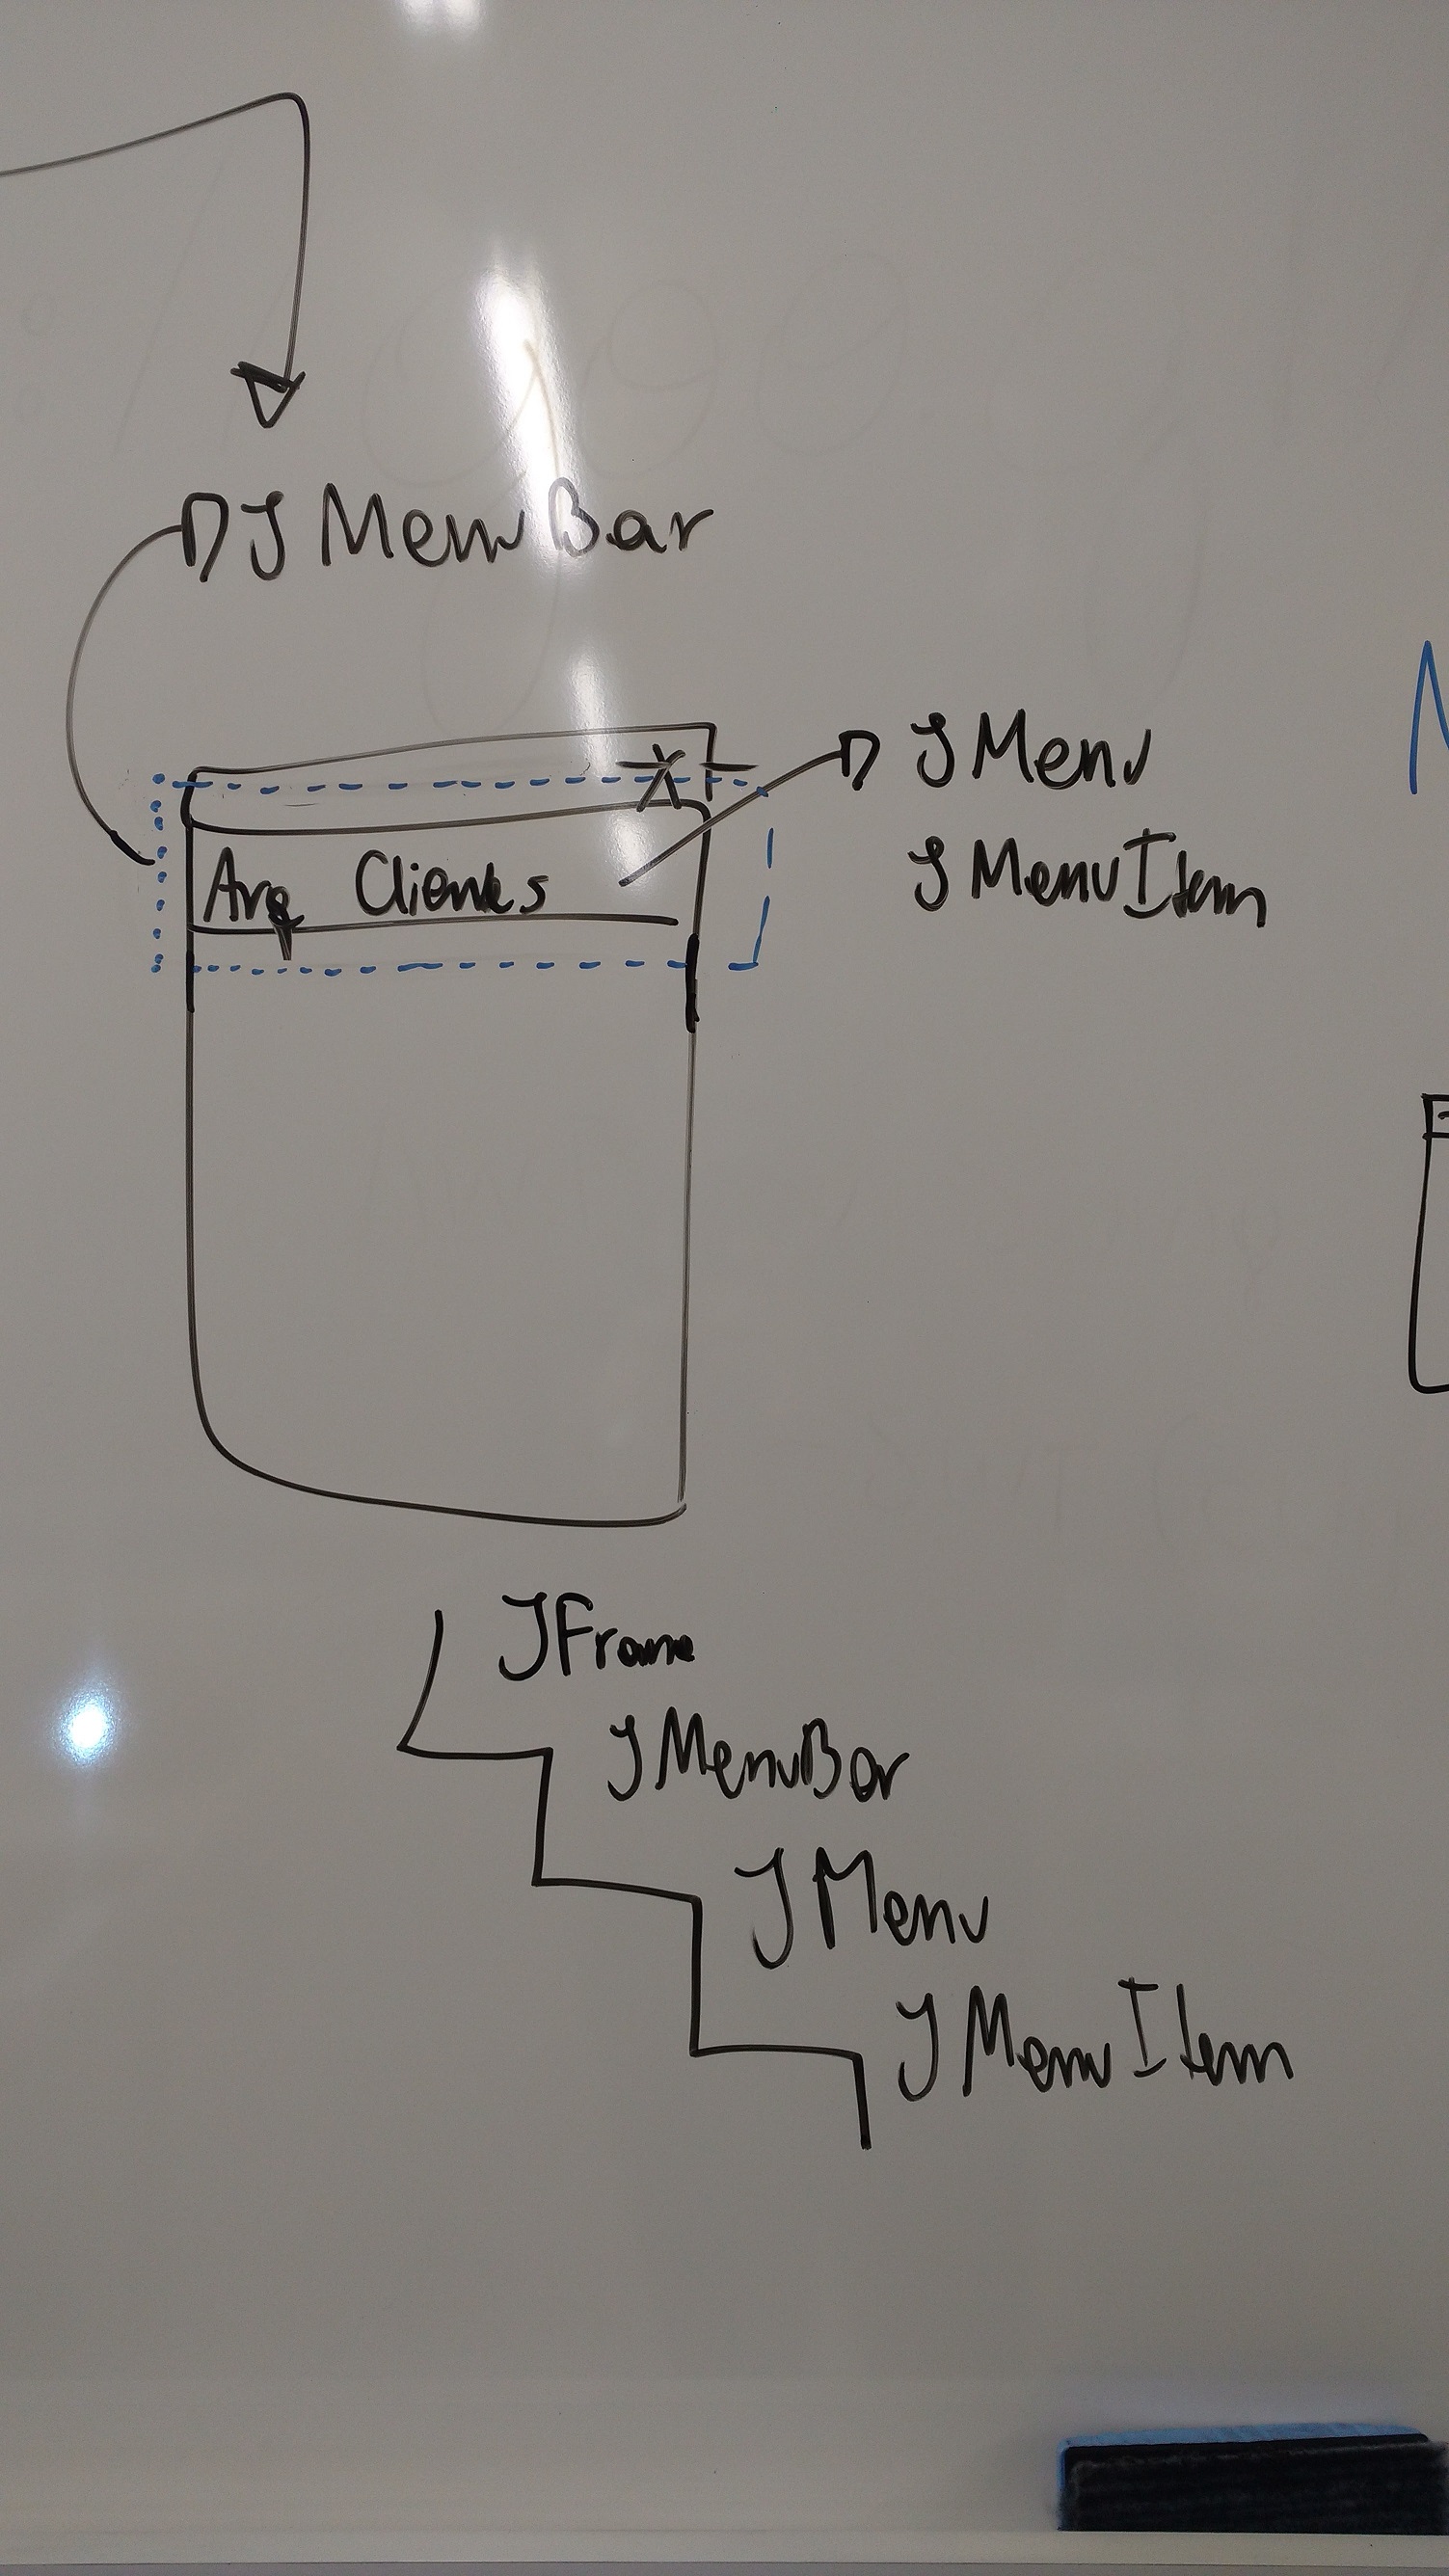 JMenuBar
X
JMenu
Arq Clientes
JMenuItem
JFrame
JMenuBar
JMenu
JMenuItem